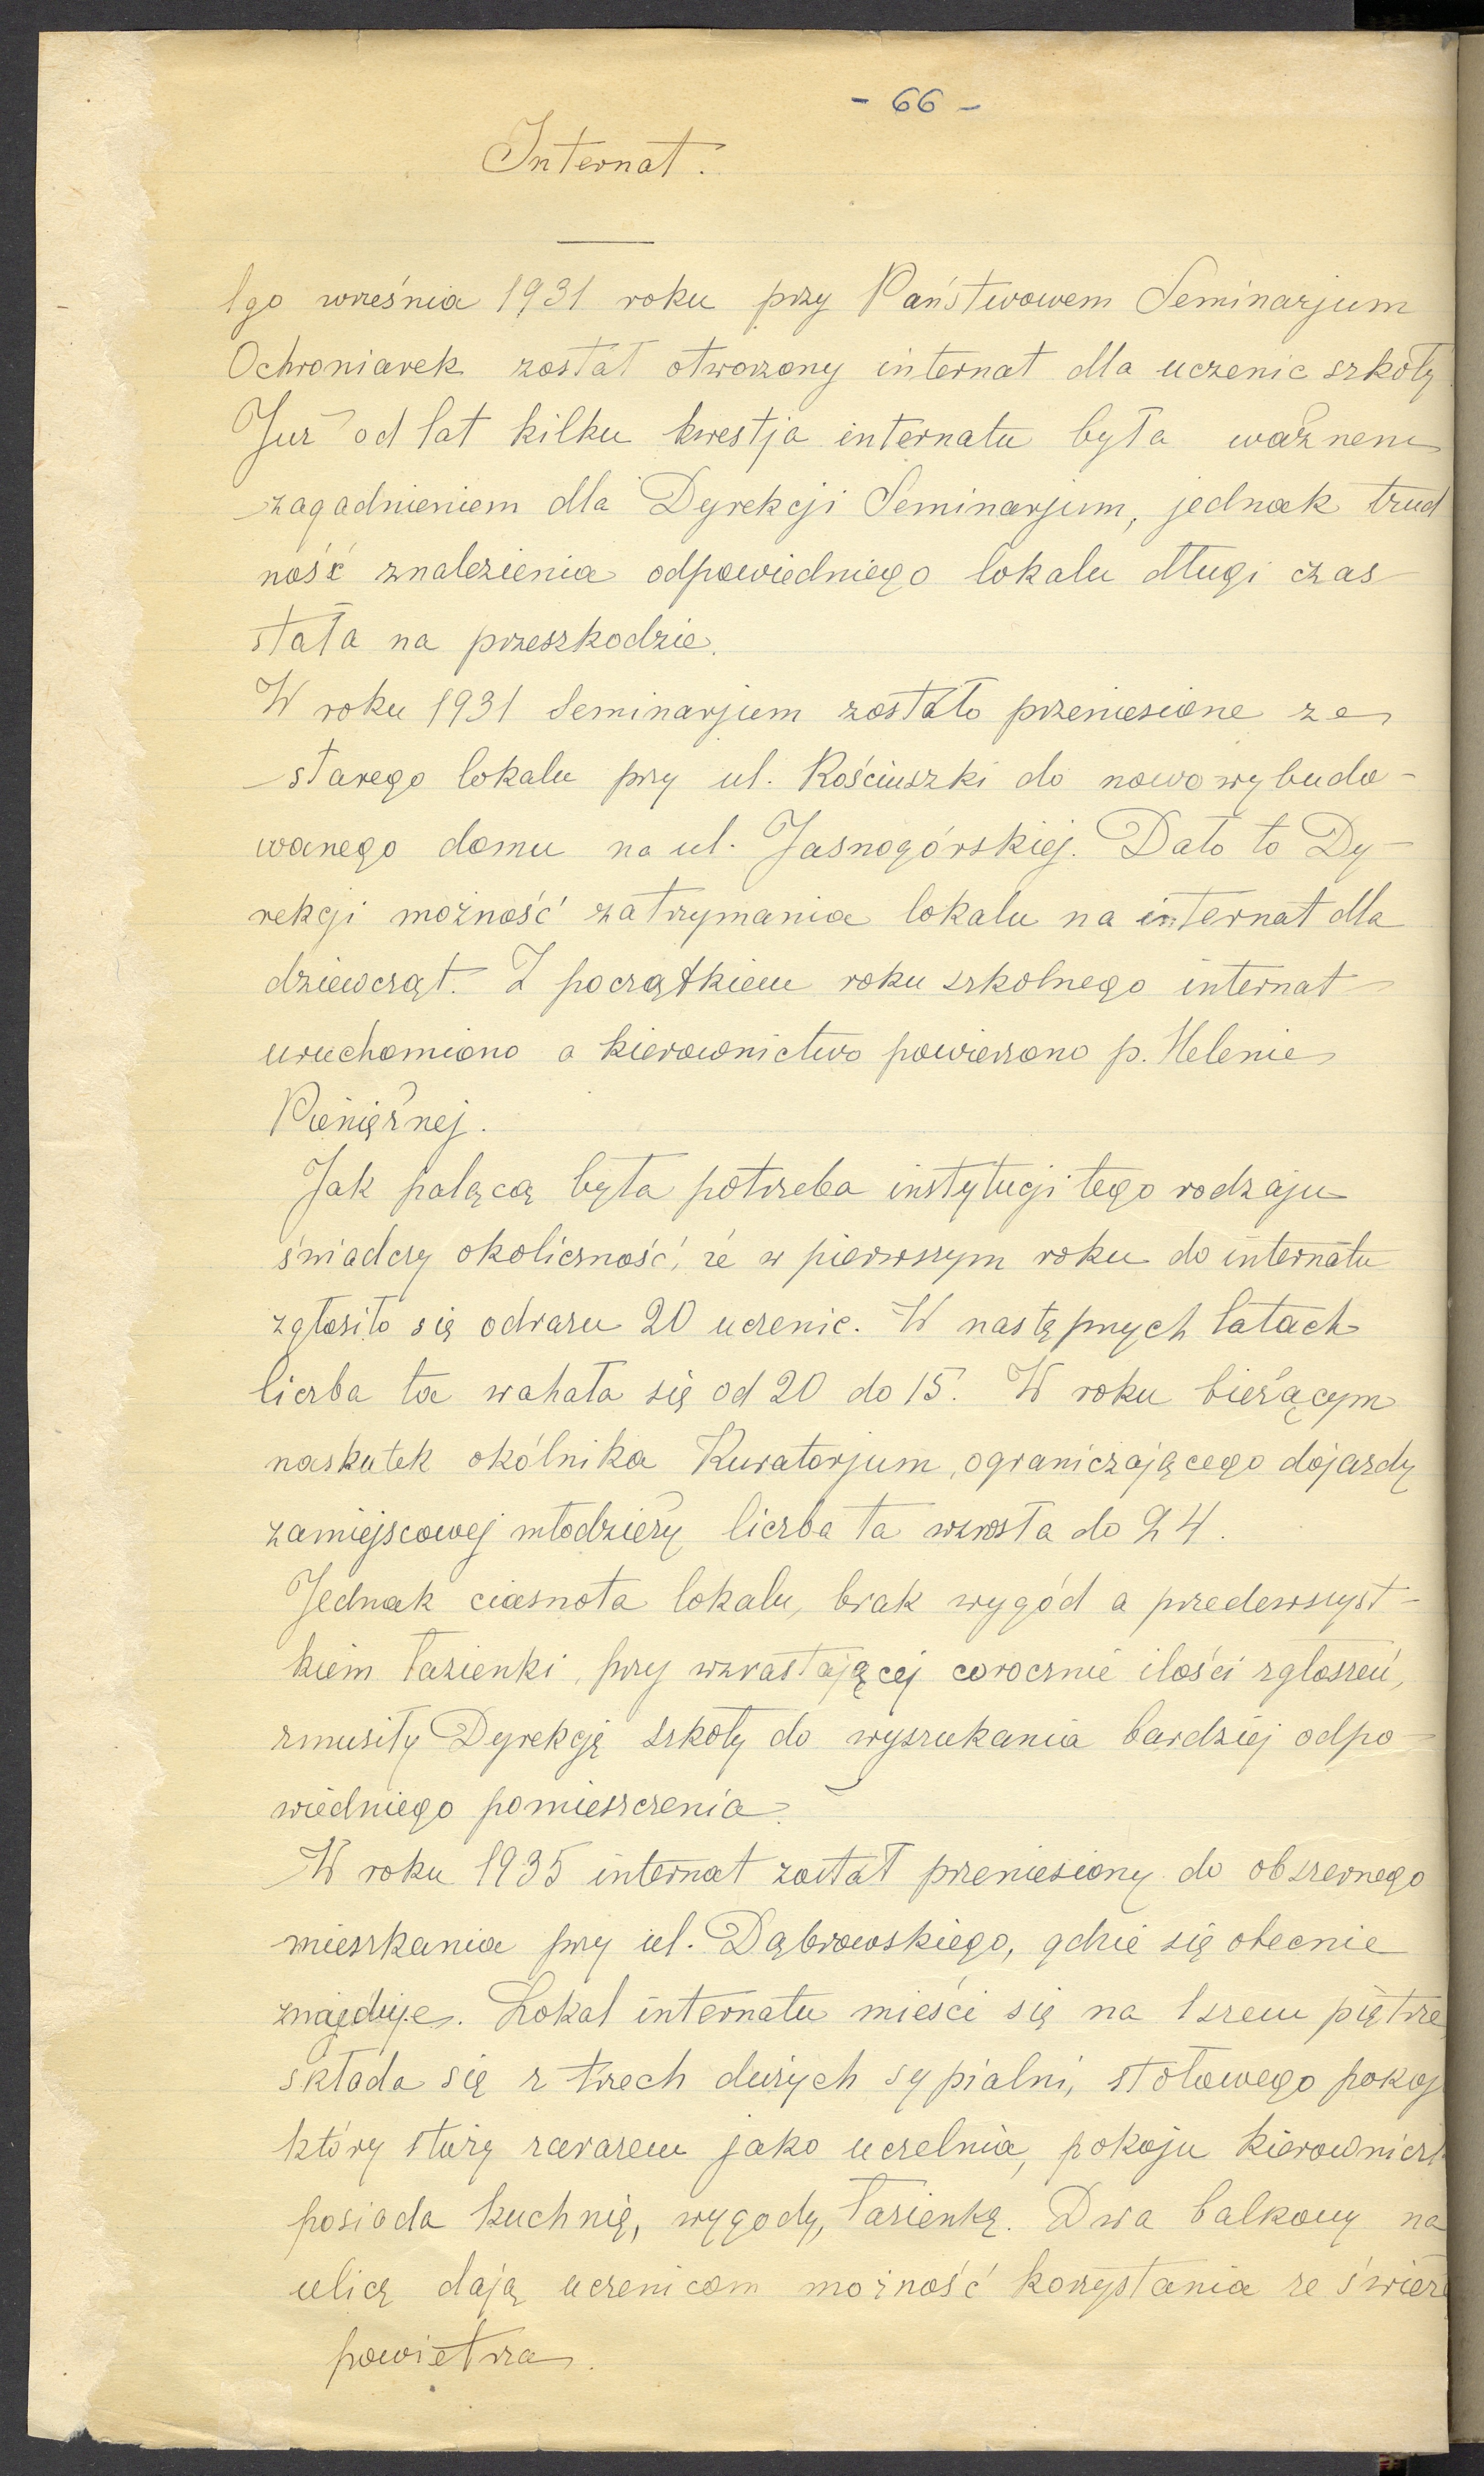 - 66 -
Internat.
1go września 1931 roku przy Państwowem Seminarjum
Ochroniarek został otworzony internat dla uczenic szkoły
Już od lat kilku kwestja internatu była ważnem
zagadnieniem dla Dyrekcji Seminarjum, jednak trud
ność znalezienia odpowiedniego lokalu długi czas
stała na przeszkodzie.
W roku 1931 Seminarjum zostało przeniesione ze
starego lokalu przy ul. Kościuszki do nowowybudo-
wanego domu na ul. Jasnogórskiej. Dało to Dy-
rekcji możność zatrzymania lokalu na internat dla
dziewcząt. Z początkiem roku szkolnego internat
uruchomiono a kierownictwo powierzono p. Helenie
Pieniężnej.
Jak palącą była potrzeba instytucji tego rodzaju
świadczy okoliczność, że w pierwszym roku do internatu
zgłosiło się odrazu 20 uczenic. W następnych latach
liczba ta wahała się od 20 do 15. W roku bieżącym
naskutek okólnika Kuratorjum, ograniczającego dojazdy
zamiejscowej młodzieży liczba ta wzrosła do 24.
Jednak ciasnota lokalu, brak wygód a przedewszyst-
kiem łazienki, przy wzrastającej corocznie ilości zgłoszeń,
zmusiły Dyrekcję szkoły do wyszukania bardziej odpo-
wiedniego pomieszczenia.
W roku 1935 internat został przeniesiony do obszernego
mieszkania przy ul. Dąbrowskiego, gdzie się obecnie
znajduje. Lokal internatu mieści się na 1szem piętrze
składa się z trzech dużych sypialni, stołowego pokoj
który służy zarazem jako uczelnia, pokoju kierownicz
posiada kuchnię, wygody, łazienkę. Dwa balkony na
ulicę dają uczenicom możność korzystania ze śwież
powietrza.